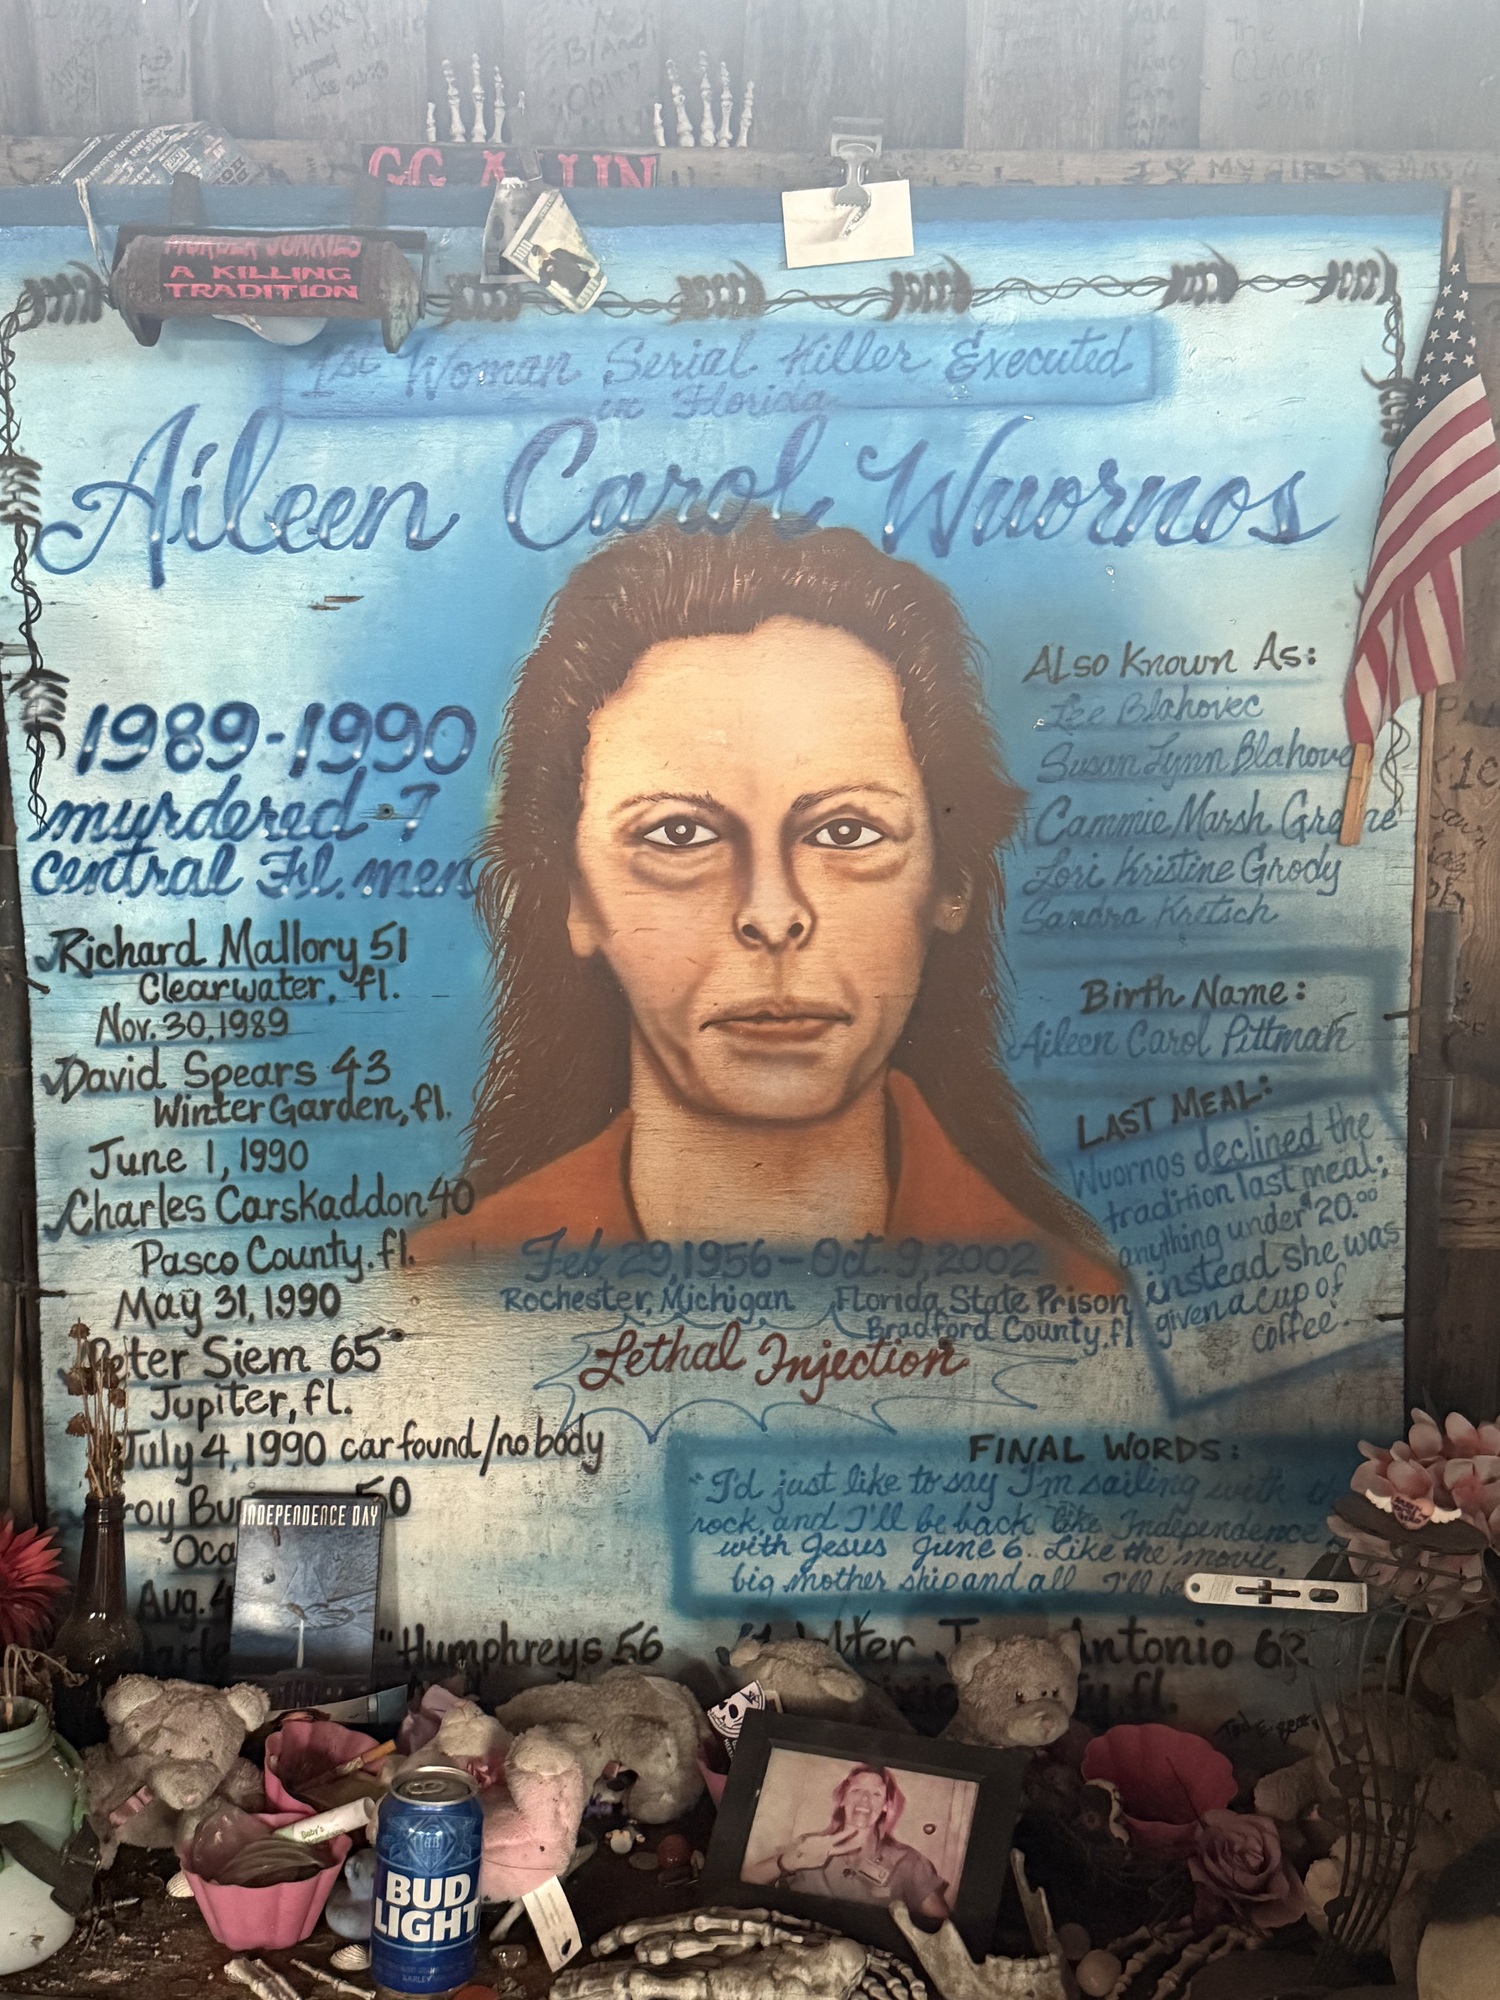 GG ALLIN
MURDER JUNKIES
A KILLING
TRADITION
1st Woman Serial Killer Executed
in Florida
Aileen Carol Wuornos
1989-1990
murdered 7
central Fl. men
Richard Mallory 51
Clearwater, fl.
Nov. 30, 1989
David Spears 43
Winter Garden, fl.
June 1, 1990
Charles Carskaddon 40
Pasco County, fl.
May 31, 1990
Peter Siem 65
Jupiter, fl.
July 4, 1990 car found/no body
roy Bu 50
Oca
Aug. 4
"Humphreys 56
Also Known As:
Lee Blahovec
Susan Lynn Blahove
Cammie Marsh Greene
Lori Kristine Grody
Sandra Kretsch
Birth Name:
Aileen Carol Pittman
LAST MEAL:
Wuornos declined the
tradition last meal;
anything under $20.00
instead she was
given a cup of
coffee.
Feb 29, 1956 - Oct 9, 2002
Rochester, Michigan
Florida State Prison
Bradford County, fl
Lethal Injection
FINAL WORDS:
"I'd just like to say I'm sailing with
rock, and I'll be back like Independence
with Jesus June 6. Like the movie,
big mother ship and all I'll
lter J Antonio 62
fl.
INDEPENDENCE DAY
BUD
LIGHT